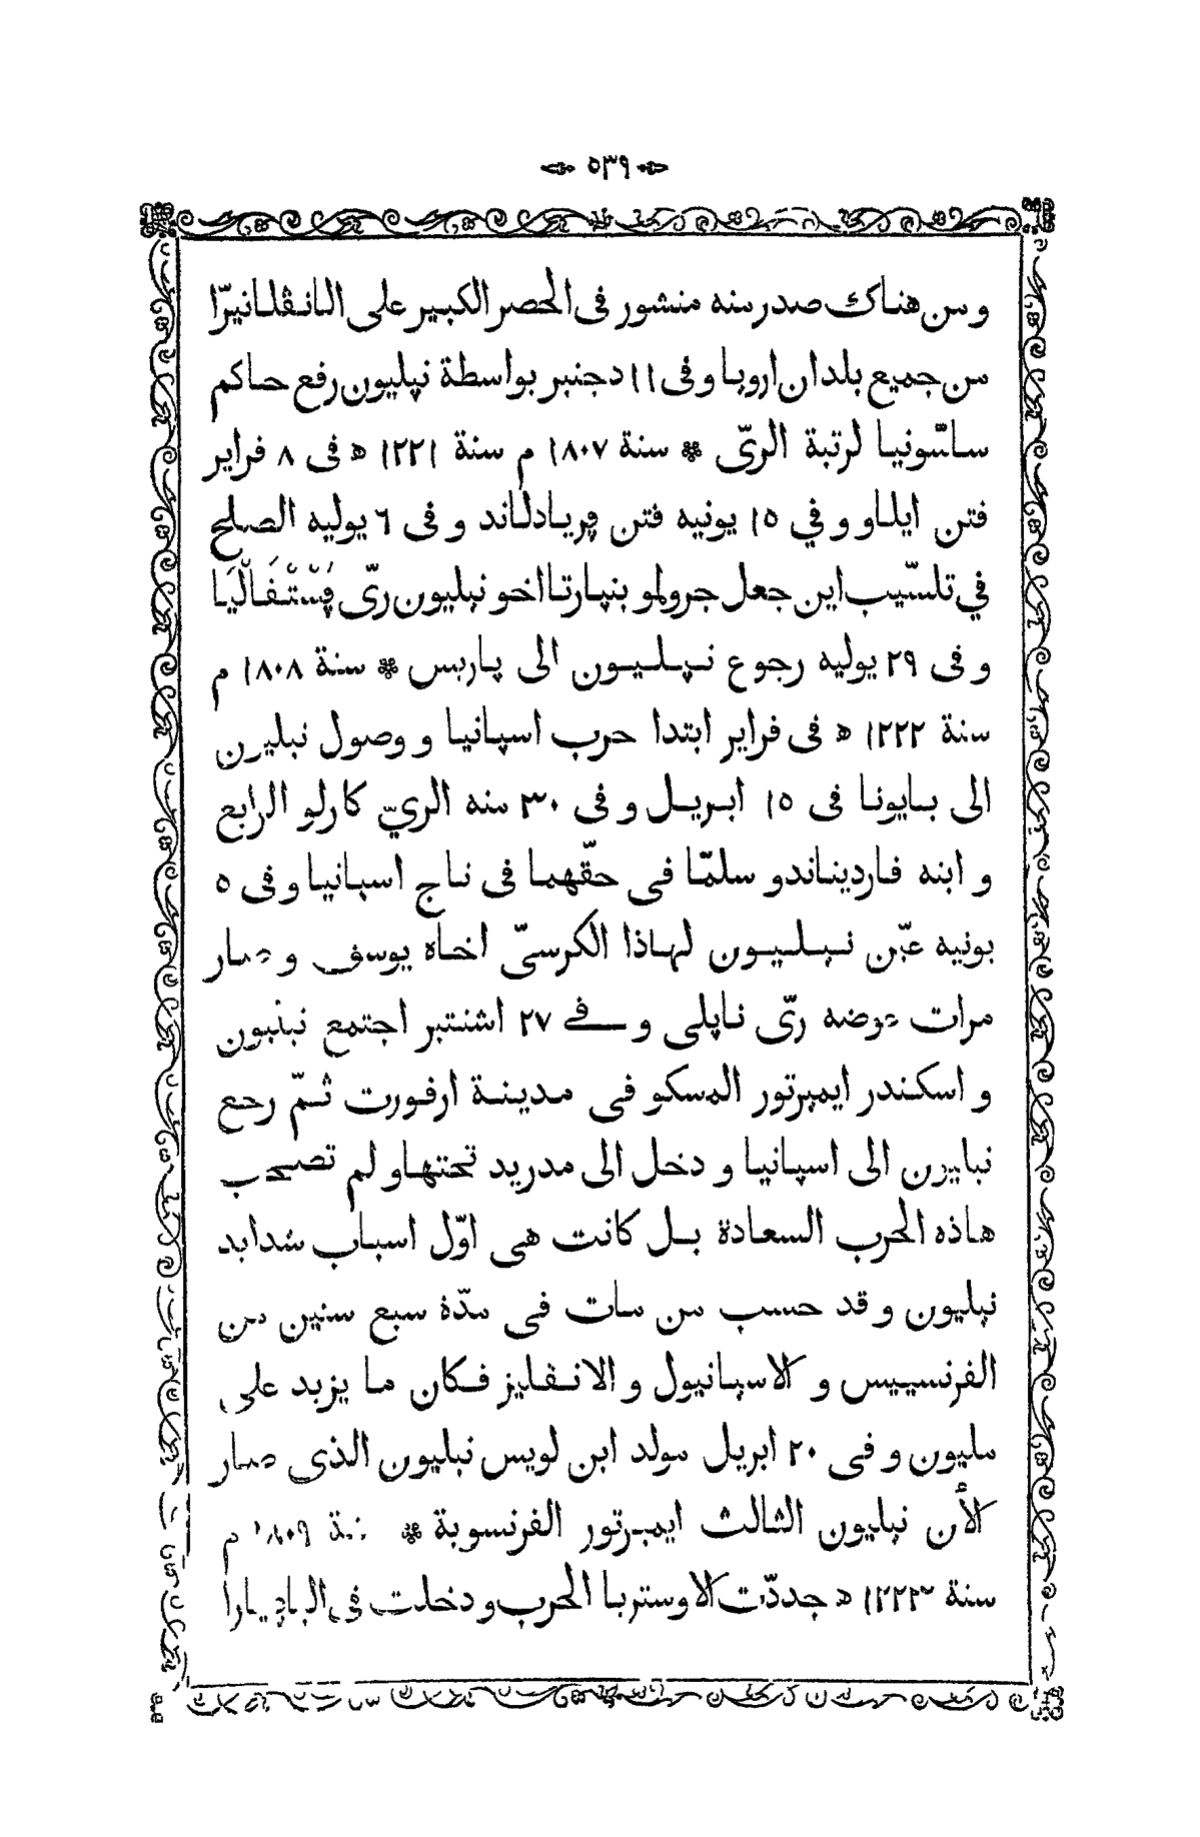 ٥٣٩
و من هناك صدر منه منشور فى الحصر الكبير على الانڤلاتيرّا
من جميع بلدان اروپا و فى ١١ دجنبر بواسطة نپليون رفع حاكم
ساسّونيا لرتبة الريّ * سنة ١٨٠٧ م سنة ١٢٢١ ه فى ٨ فراير
فتن ايلاو و في ١٥ يونيه فتن فريادلاند و فى ٦ يوليه الصلح
في تلسّيب اين جعل جرولمو بنپارتا اخو نپليون ريّ فَسْتْفَالْيَا
و فى ٢٩ يوليه رجوع نپليون الى پاريس * سنة ١٨٠٨ م
سنة ١٢٢٢ ه فى فراير ابتدا حرب اسپانيا و وصول نبليون
الى بايونا فى ١٥ ابريل و فى ٣٠ منه الريّ كارلو الرابع
و ابنه فارديناندو سلّما فى حقّهما فى تاج اسپانيا و فى ٥
يونيه عيّن نپليون لهاذا الكرسيّ اخاه يوسف و صار
مرات عوضه ريّ ناپلى و فے ٢٧ اشتنبر اجتمع نبليون
و اسكندر ايمپرتور المسكو فى مدينة ارفورت ثمّ رجع
نبليون الى اسپانيا و دخل الى مدريد تختها و لم تصحب
هاذه الحرب السعادة بل كانت هى اوّل اسباب شدايد
نپليون و قد حسب من مات فى مدّة سبع سنين من
الفرنسيس و الاسپانيول و الانڤليز فكان ما يزيد على
مليون و فى ٢٠ ابريل مولد ابن لويس نبليون الذى صار
الأن نپليون الثالث ايمپرتور الفرنسوية * سنة ١٨٠٩ م
سنة ١٢٢٣ ه جددّت الاوستريا الحرب و دخلت فى الباڢيارا